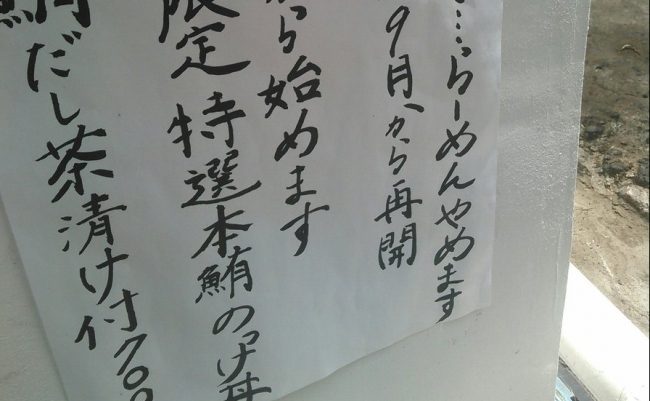 …らーめんやめます
9月から再開
から始めます
限定 特選本鮪のづけ丼
鯛だし茶漬け付700